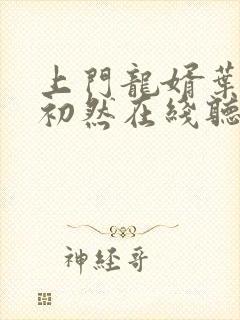 上門龍婿葉
初然在綫聽
神経哥